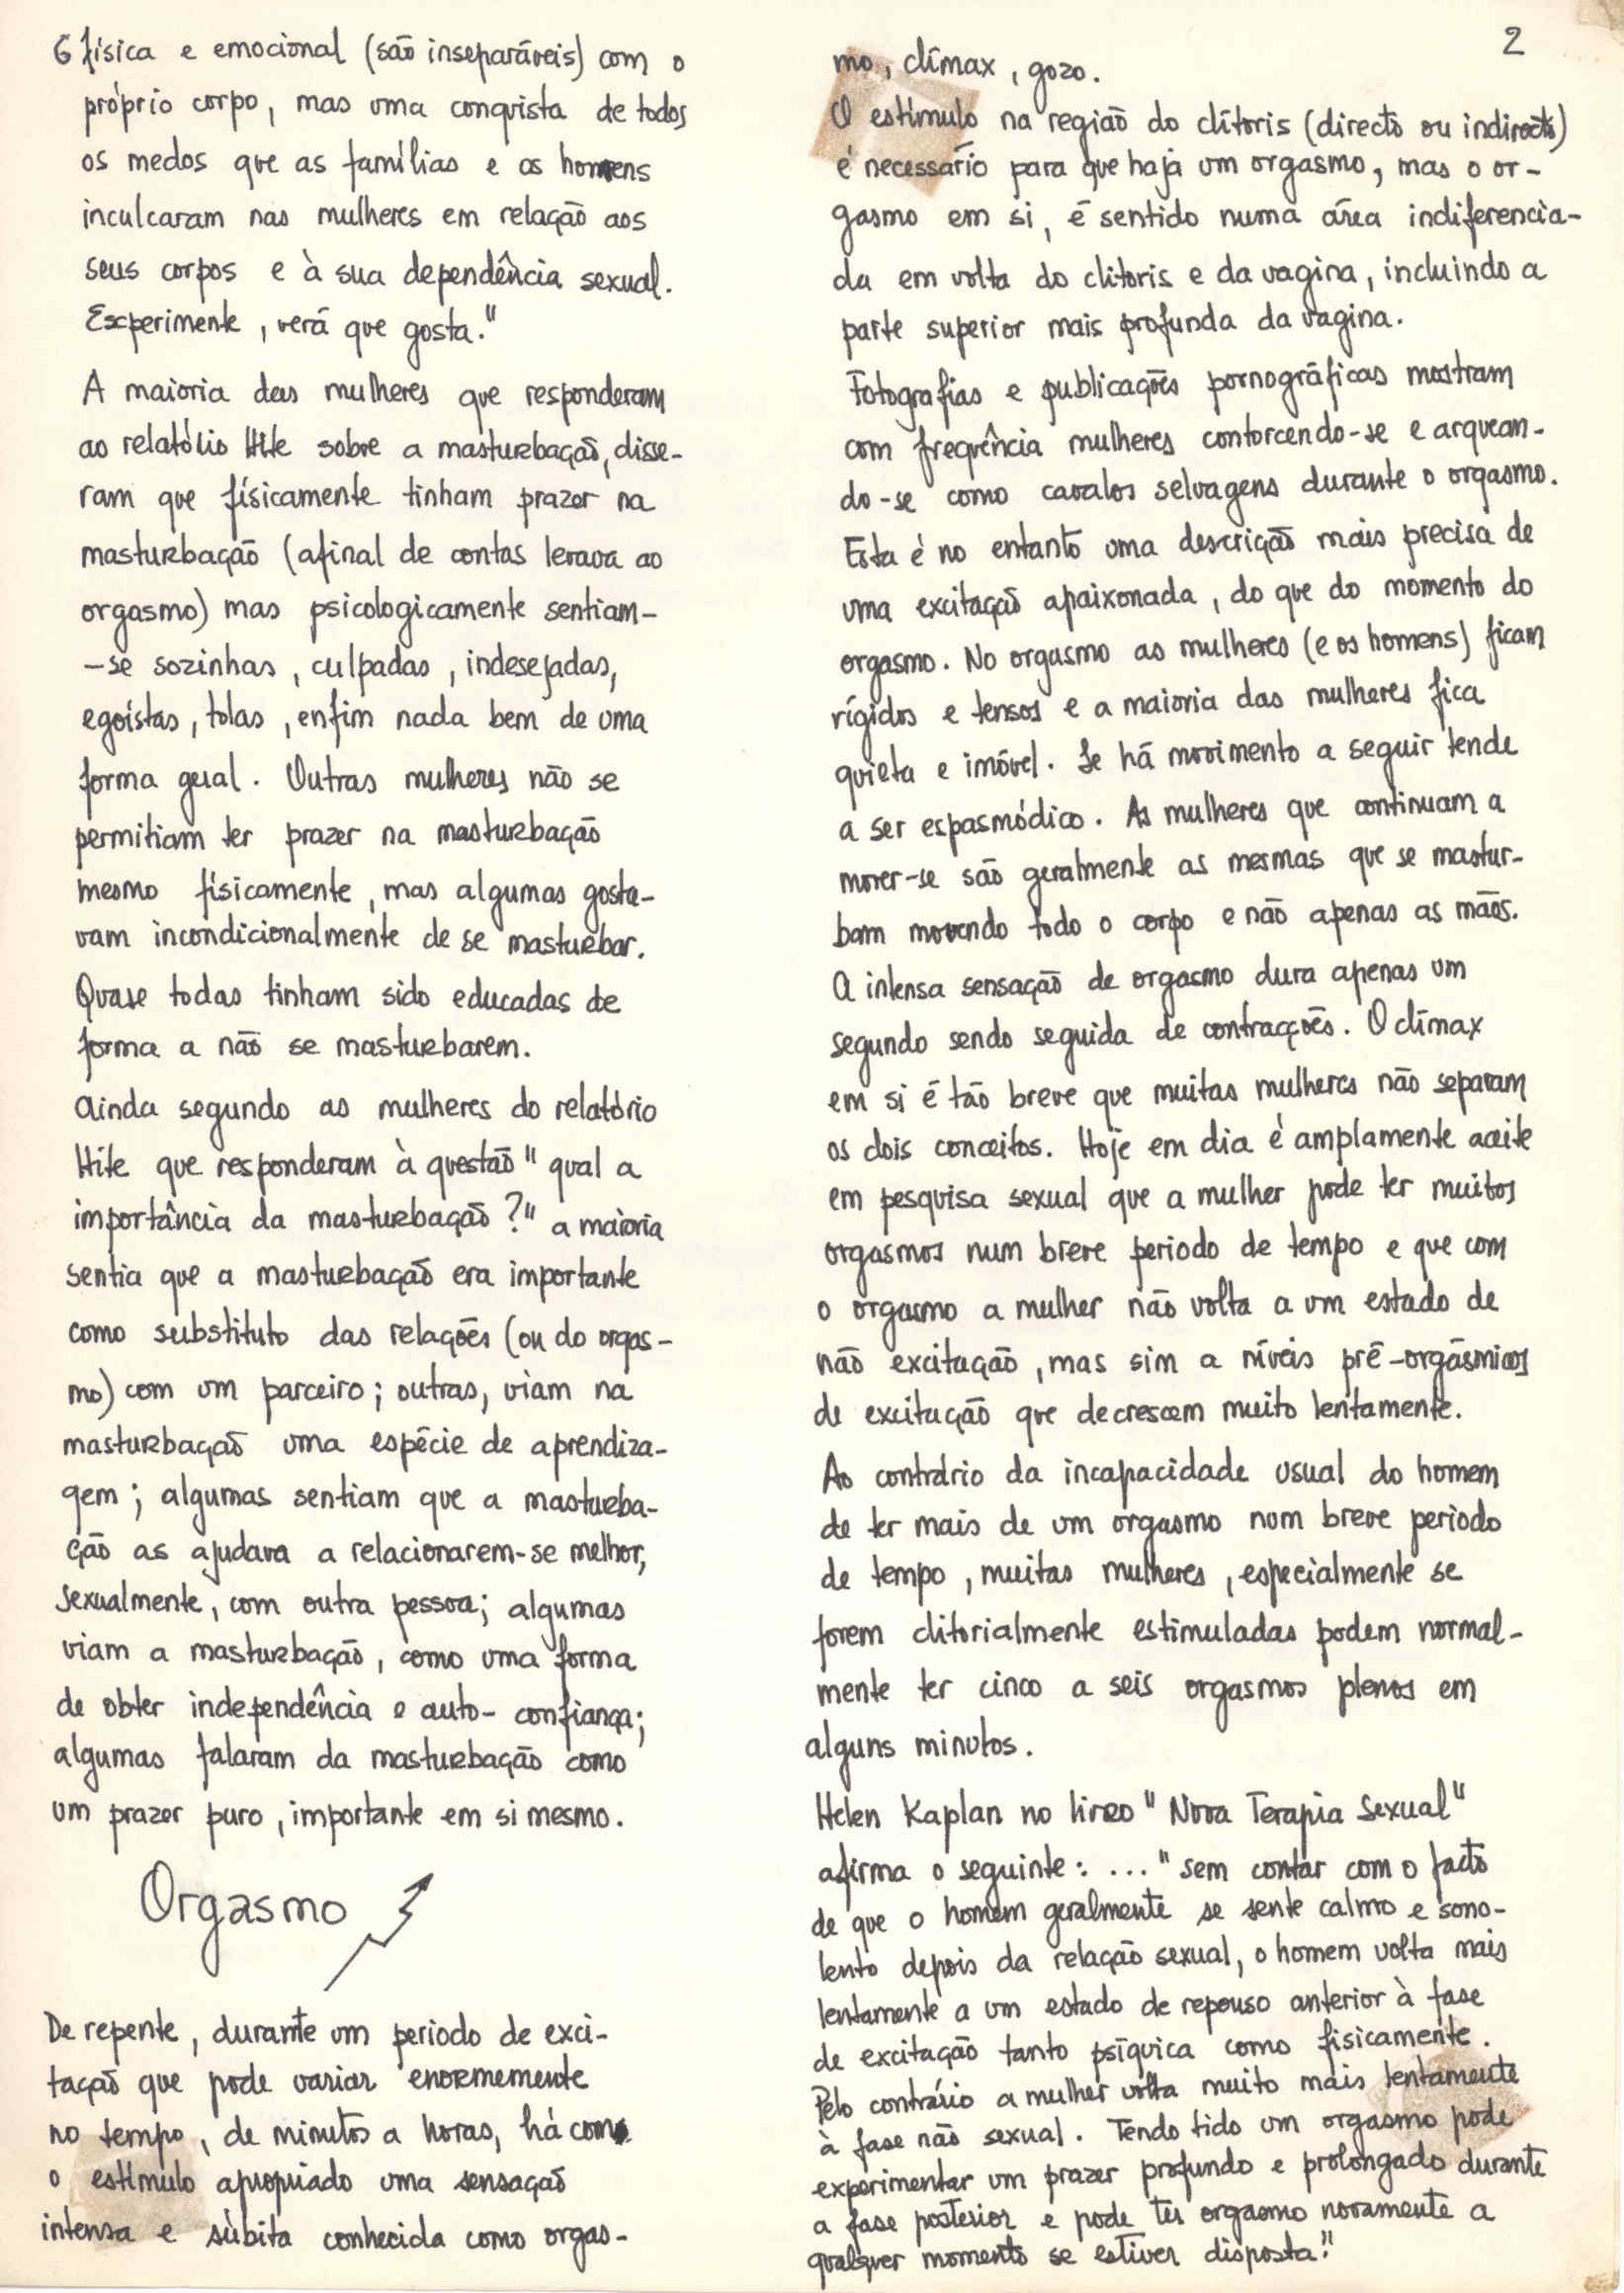 6 física e emocional (são inseparáveis) com o
próprio corpo, mas uma conquista de todos
os medos que as famílias e os homens
inculcaram nas mulheres em relação aos
seus corpos e à sua dependência sexual.
Experimente, verá que gosta."
A maioria das mulheres que responderam
ao relatólio Hite sobre a masturbação, disse-
ram que físicamente tinham prazer na
masturbação (afinal de contas levava ao
orgasmo) mas psicologicamente sentiam-
-se sozinhas, culpadas, indesejadas,
egoístas, tolas, enfim nada bem de uma
forma geral. Outras mulheres não se
permitiam ter prazer na masturbação
mesmo físicamente, mas algumas gosta-
vam incondicionalmente de se masturbar.
Quase todas tinham sido educadas de
forma a não se masturbarem.
Ainda segundo as mulheres do relatório
Hite que responderam à questão "qual a
importância da masturbação?" a maioria
sentia que a masturbação era importante
como substituto das relações (ou do orgas-
mo) com um parceiro; outras, viam na
masturbação uma espécie de aprendiza-
gem; algumas sentiam que a masturba-
ção as ajudava a relacionarem-se melhor,
sexualmente, com outra pessoa; algumas
viam a masturbação, como uma forma
de obter independência e auto-confiança;
algumas falaram da masturbação como
um prazer puro, importante em si mesmo.
Orgasmo
De repente, durante um periodo de exci-
tação que pode variar enormemente
no tempo, de minutos a horas, há com
o estímulo apropriado uma sensação
intensa e súbita conhecida como orgas-
2
mo, clímax, gozo.
O estímulo na região do clítoris (directo ou indirecto)
é necessário para que haja um orgasmo, mas o or-
gasmo em si, é sentido numa área indiferencia-
da em volta do clitoris e da vagina, incluindo a
parte superior mais profunda da vagina.
Fotografias e publicações pornográficas mostram
com freqência mulheres contorcendo-se e arquean-
do-se como cavalos selvagens durante o orgasmo.
Esta é no entanto uma descrição mais precisa de
uma excitação apaixonada, do que do momento do
orgasmo. No orgasmo as mulheres (e os homens) ficam
rígidos e tensos e a maioria das mulheres fica
quieta e imóvel. Se há movimento a seguir tende
a ser espasmódico. As mulheres que continuam a
mover-se são geralmente as mesmas que se mastur-
bam movendo todo o corpo e não apenas as mãos.
A intensa sensação de orgasmo dura apenas um
segundo sendo seguida de contracções. O clímax
em si é tão breve que muitas mulheres não separam
os dois conceitos. Hoje em dia é amplamente aceite
em pesquisa sexual que a mulher pode ter muitos
orgasmos num breve periodo de tempo e que com
o orgasmo a mulher não volta a um estado de
não excitação, mas sim a níveis pré-orgásmicos
de excitação que decrescem muito lentamente.
Ao contrário da incapacidade usual do homem
de ter mais de um orgasmo num breve periodo
de tempo, muitas mulheres, especialmente se
forem clitorialmente estimuladas podem normal-
mente ter cinco a seis orgasmos plenos em
alguns minutos.
Helen Kaplan no livro "Nova Terapia Sexual"
afirma o seguinte: ... "sem contar com o facto
de que o homem geralmente se sente calmo e sono-
lento depois da relação sexual, o homem volta mais
lentamente a um estado de repouso anterior à fase
de excitação tanto psíquica como fisicamente.
Pelo contrário a mulher volta muito mais lentamente
à fase não sexual. Tendo tido um orgasmo pode
experimentar um prazer profundo e prolongado durante
a fase posterior e pode ter orgasmo novamente a
qualquer momento se estiver disposta."